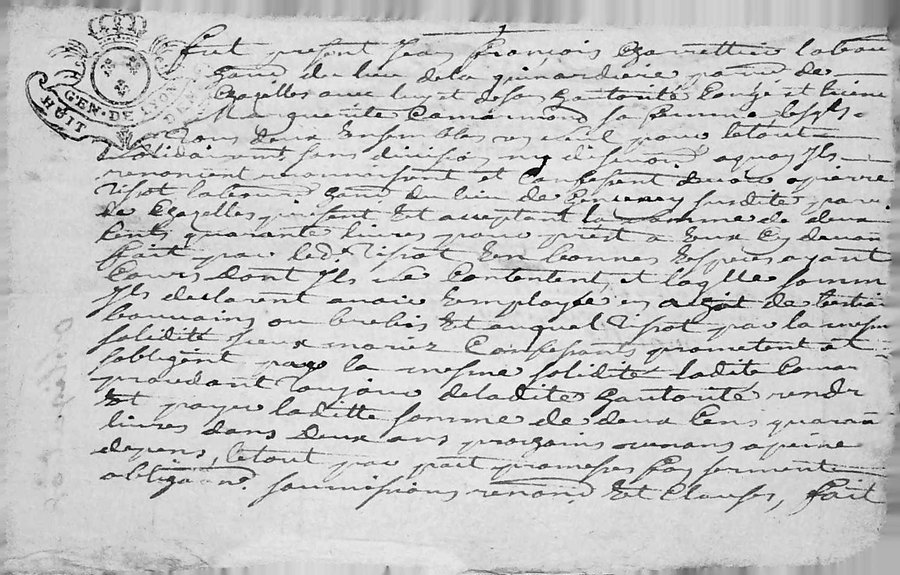 GEN. DE LYON
HUIT DEN.
fut présent Jean François Chamettier labou
gant du lieu de la guinardiere paroisse de
Chazelles avec luy et de son hautorité Congé et licence
Marguerite sa femme lesqls
Tous deux Ensembles un seul pour letout
solidairement sans division ny discution aquoy Ils
renoncient reconnoissent et Confessent devoir a pierre
Tisot laboureur hant du lieu de susdite paroi
de Chazelles présent Et acceptant la somme de deux
Cents quarante livres pour prest a Eux Cy devan
fait par led. Tisot En bonnes Espèces ayant
Cours dont Ils se Contentent, et laqlle somme
Ils declarent avoir Employée en achat de bestiau
ou brebis Et auquel Tisot par la mesme
solidité yceux mariez Confessants prometent et
sobligent par la mesme solidité ladite Camar
procedant Toujour deladite hautorité rendre
Et payer laditte somme de deux Cens quaran
livres dans deux ans prozains venans a peine
depens, letout par pait promesses foy serment
obligaon. soumissions renon. Et Clauses, fait